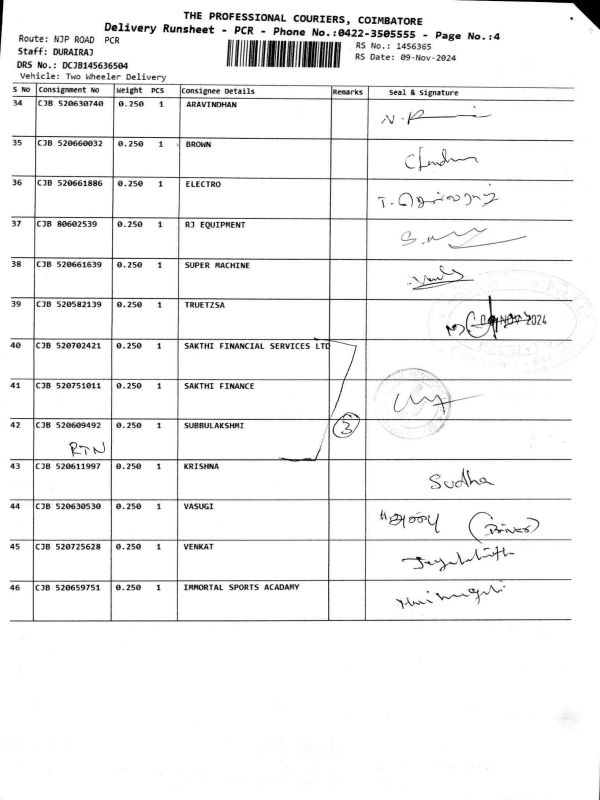 THE PROFESSIONAL COURIERS, COIMBATORE
Delivery Runsheet - PCR - Phone No.:0422-3505555 - Page No.:4
Route: NJP ROAD PCR
RS No.: 1456365
Staff: DURAIRAJ
RS Date: 09-Nov-2024
DRS No.: DCJB145636504
Vehicle: Two Wheeler Delivery
S No Consignment No Weight PCS Consignee Details Remarks Seal & Signature
34 CJB 520630740 0.250 1 ARAVINDHAN
35 CJB 520660032 0.250 1 BROWN
36 CJB 520661886 0.250 1 ELECTRO
37 CJB 80602539 0.250 1 RJ EQUIPMENT
38 CJB 520661639 0.250 1 SUPER MACHINE
39 CJB 520582139 0.250 1 TRUETZSA NOV 2024
40 CJB 520702421 0.250 1 SAKTHI FINANCIAL SERVICES LTD
41 CJB 520751011 0.250 1 SAKTHI FINANCE
42 CJB 520609492 0.250 1 SUBBULAKSHMI 3
RTN
43 CJB 520611997 0.250 1 KRISHNA Sudha
44 CJB 520630530 0.250 1 VASUGI (Driver)
45 CJB 520725628 0.250 1 VENKAT
46 CJB 520659751 0.250 1 IMMORTAL SPORTS ACADAMY